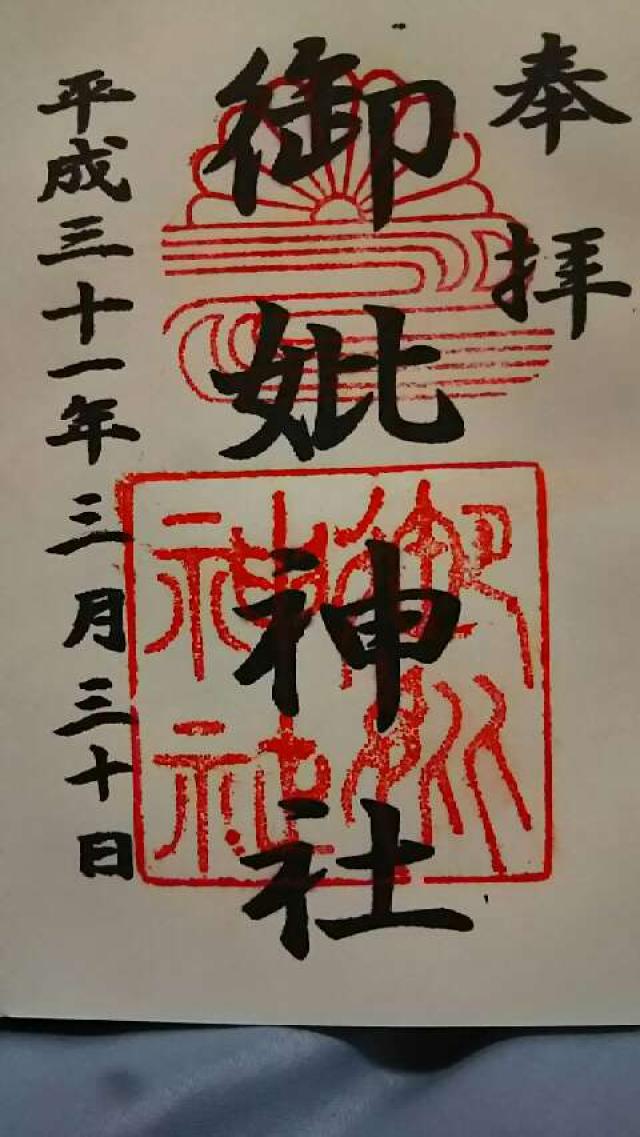 奉拝
御妣神社
平成三十一年三月三十日
御妣神社